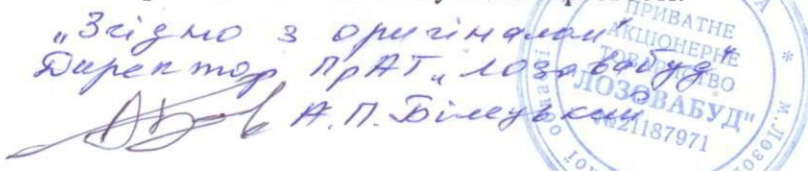 „Згідно з оригіналом"
Директор ПрАТ „Лозовабуд"
А.П. Білецький
ПРИВАТНЕ
АКЦІОНЕРНЕ
ТОВАРИСТВО
"ЛОЗОВАБУД"
№21187971
* м. Лозо